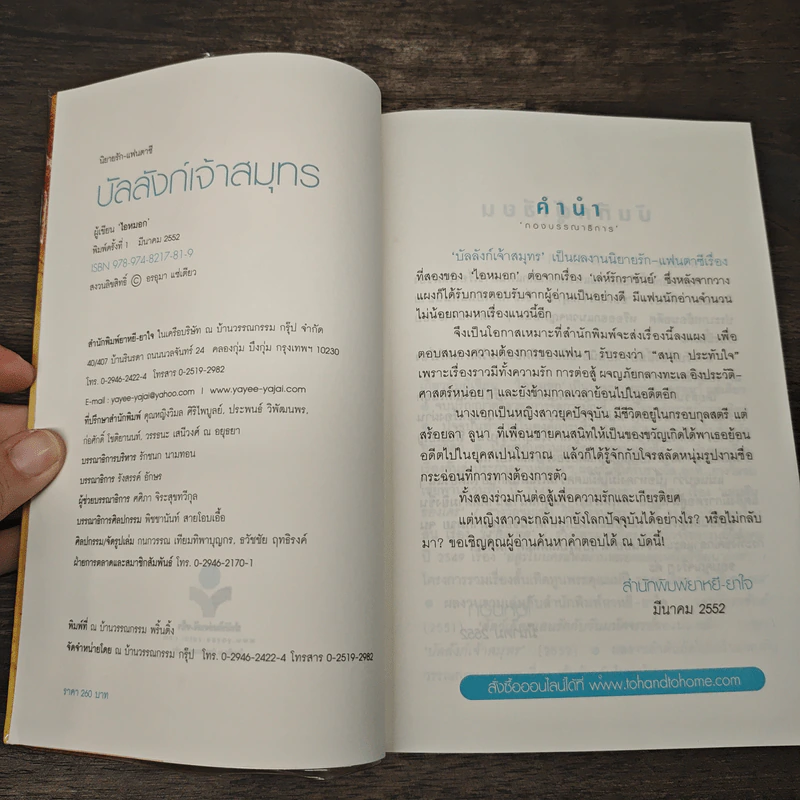 นิยายรัก-แฟนตาซี
บัลลังก์เจ้าสมุทร
ผู้เขียน 'ไอหมอก'
พิมพ์ครั้งที่ 1 มีนาคม 2552
ISBN 978-974-8217-81-9
สงวนลิขสิทธิ์ © อรอุมา แซ่เตียว
สำนักพิมพ์ยาหยี-ยาใจ ในเครือบริษัท ณ บ้านวรรณกรรม กรุ๊ป จำกัด
40/407 บ้านรินรดา ถนนนวลจันทร์ 24 คลองกุ่ม บึงกุ่ม กรุงเทพฯ 10230
โทร. 0-2946-2422-4 โทรสาร 0-2519-2982
E-mail : yayee-yajai@yahoo.com | www.yayee-yajai.com
ที่ปรึกษาสำนักพิมพ์ คุณหญิงวิมล ศิริไพบูลย์, ประพนธ์ วิพัฒนพร,
ก่อศักดิ์ โชติยานนท์, วรรธนะ เสนีวงศ์ ณ อยุธยา
บรรณาธิการบริหาร รักชนก นามทอน
บรรณาธิการ รังสรรค์ อักษร
ผู้ช่วยบรรณาธิการ คศิภา จิระสุขทวีกุล
บรรณาธิการศิลปกรรม พิชชานันท์ สายโอบเอื้อ
ศิลปกรรม/จัดรูปเล่ม กนกวรรณ เทียมทิพานุญกร, ธวัชชัย ฤทธิรงค์
ฝ่ายการตลาดและสมาชิกสัมพันธ์ โทร. 0-2946-2170-1
พิมพ์ที่ ณ บ้านวรรณกรรม พริ้นติ้ง
จัดจำหน่ายโดย ณ บ้านวรรณกรรม กรุ๊ป โทร. 0-2946-2422-4 โทรสาร 0-2519-2982
ราคา 260 บาท
คำนำ
'กองบรรณาธิการ'
'บัลลังก์เจ้าสมุทร' เป็นผลงานนิยายรัก-แฟนตาซีเรื่อง
ที่สองของ 'ไอหมอก' ต่อจากเรื่อง 'เล่ห์รักราชันย์' ซึ่งหลังจากวาง
แผงก็ได้รับการตอบรับจากผู้อ่านเป็นอย่างดี มีแฟนนักอ่านจำนวน
ไม่น้อยถามหาเรื่องแนวนี้อีก
จึงเป็นโอกาสเหมาะที่สำนักพิมพ์จะส่งเรื่องนี้ลงแผง เพื่อ
ตอบสนองความต้องการของแฟนๆ รับรองว่า "สนุก ประทับใจ"
เพราะเรื่องราวมีทั้งความรัก การต่อสู้ ผจญภัยกลางทะเล อิงประวัติ-
ศาสตร์หน่อยๆ และยังข้ามกาลเวลาย้อนไปในอดีตอีก
นางเอกเป็นหญิงสาวยุคปัจจุบัน มีชีวิตอยู่ในกรอบกุลสตรี แต่
สร้อยลา ลูนา ที่เพื่อนชายคนสนิทให้เป็นของขวัญเกิดได้พาเธอย้อน
อดีตไปในยุคสเปนโบราณ แล้วก็ได้รู้จักกับโจรสลัดหนุ่มรูปงามชื่อ
กระฉ่อนที่การทางต้องการตัว
ทั้งสองร่วมกันต่อสู้เพื่อความรักและเกียรติยศ
แต่หญิงสาวจะกลับมายังโลกปัจจุบันได้อย่างไร? หรือไม่กลับ
มา? ขอเชิญคุณผู้อ่านค้นหาคำตอบได้ ณ บัดนี้!
สำนักพิมพ์ยาหยี-ยาใจ
มีนาคม 2552
สั่งซื้อออนไลน์ได้ที่ www.tohandtohome.com